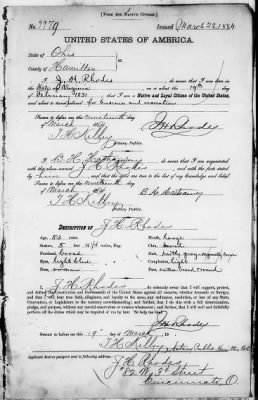 [FORM FOR NATIVE CITIZEN.]
No. 9979 Issued March 22 1884
UNITED STATES OF AMERICA.
State of Ohio
County of Hamilton
I, J. H. Rhodes do swear that I was born in
the on the 19th day
of 1831 that I am a Native and Loyal Citizen of the United States,
and about to travel abroad for business and recreation
Sworn to before me this nineteenth day
of March 1884
T. H. Kelley
Notary Public.
J. H. Rhodes
I, B. H. do swear that I am acquainted
with the above-named J. H. Rhodes
by him are true to the best of my knowledge and belief.
Sworn to before me this nineteenth day
of March 1884
T. H. Kelley
Notary Public.
B. H.
DESCRIPTION OF J. H. Rhodes
Age, 53 years.
Stature, 5 feet inches, Eng.
Forehead, broad
Eyes, light blue
Nose, roman
Mouth,
Chin,
Hair,
Complexion, light
Face, rather broad & round
I, J. H. Rhodes do solemnly swear that I will support, protect, and
defend the Constitution and Government of the United States against all enemies, whether domestic or foreign, and
that I will bear true faith, allegiance, and loyalty to the same, any ordinance, resolution, or law of any State,
Convention, or Legislature to the contrary notwithstanding; and further, that I do this with a full determination,
pledge, and purpose, without any mental reservation or evasion whatsoever; and further, that I will well and faithfully
perform all the duties which may be required of me by law. So help me God.
J. H. Rhodes
Sworn to before me this 19th day of March
1884
T. H. Kelley Notary Public
Applicant desires passport sent to following address:
J. H. Rhodes
3d Street
Cincinnati O.